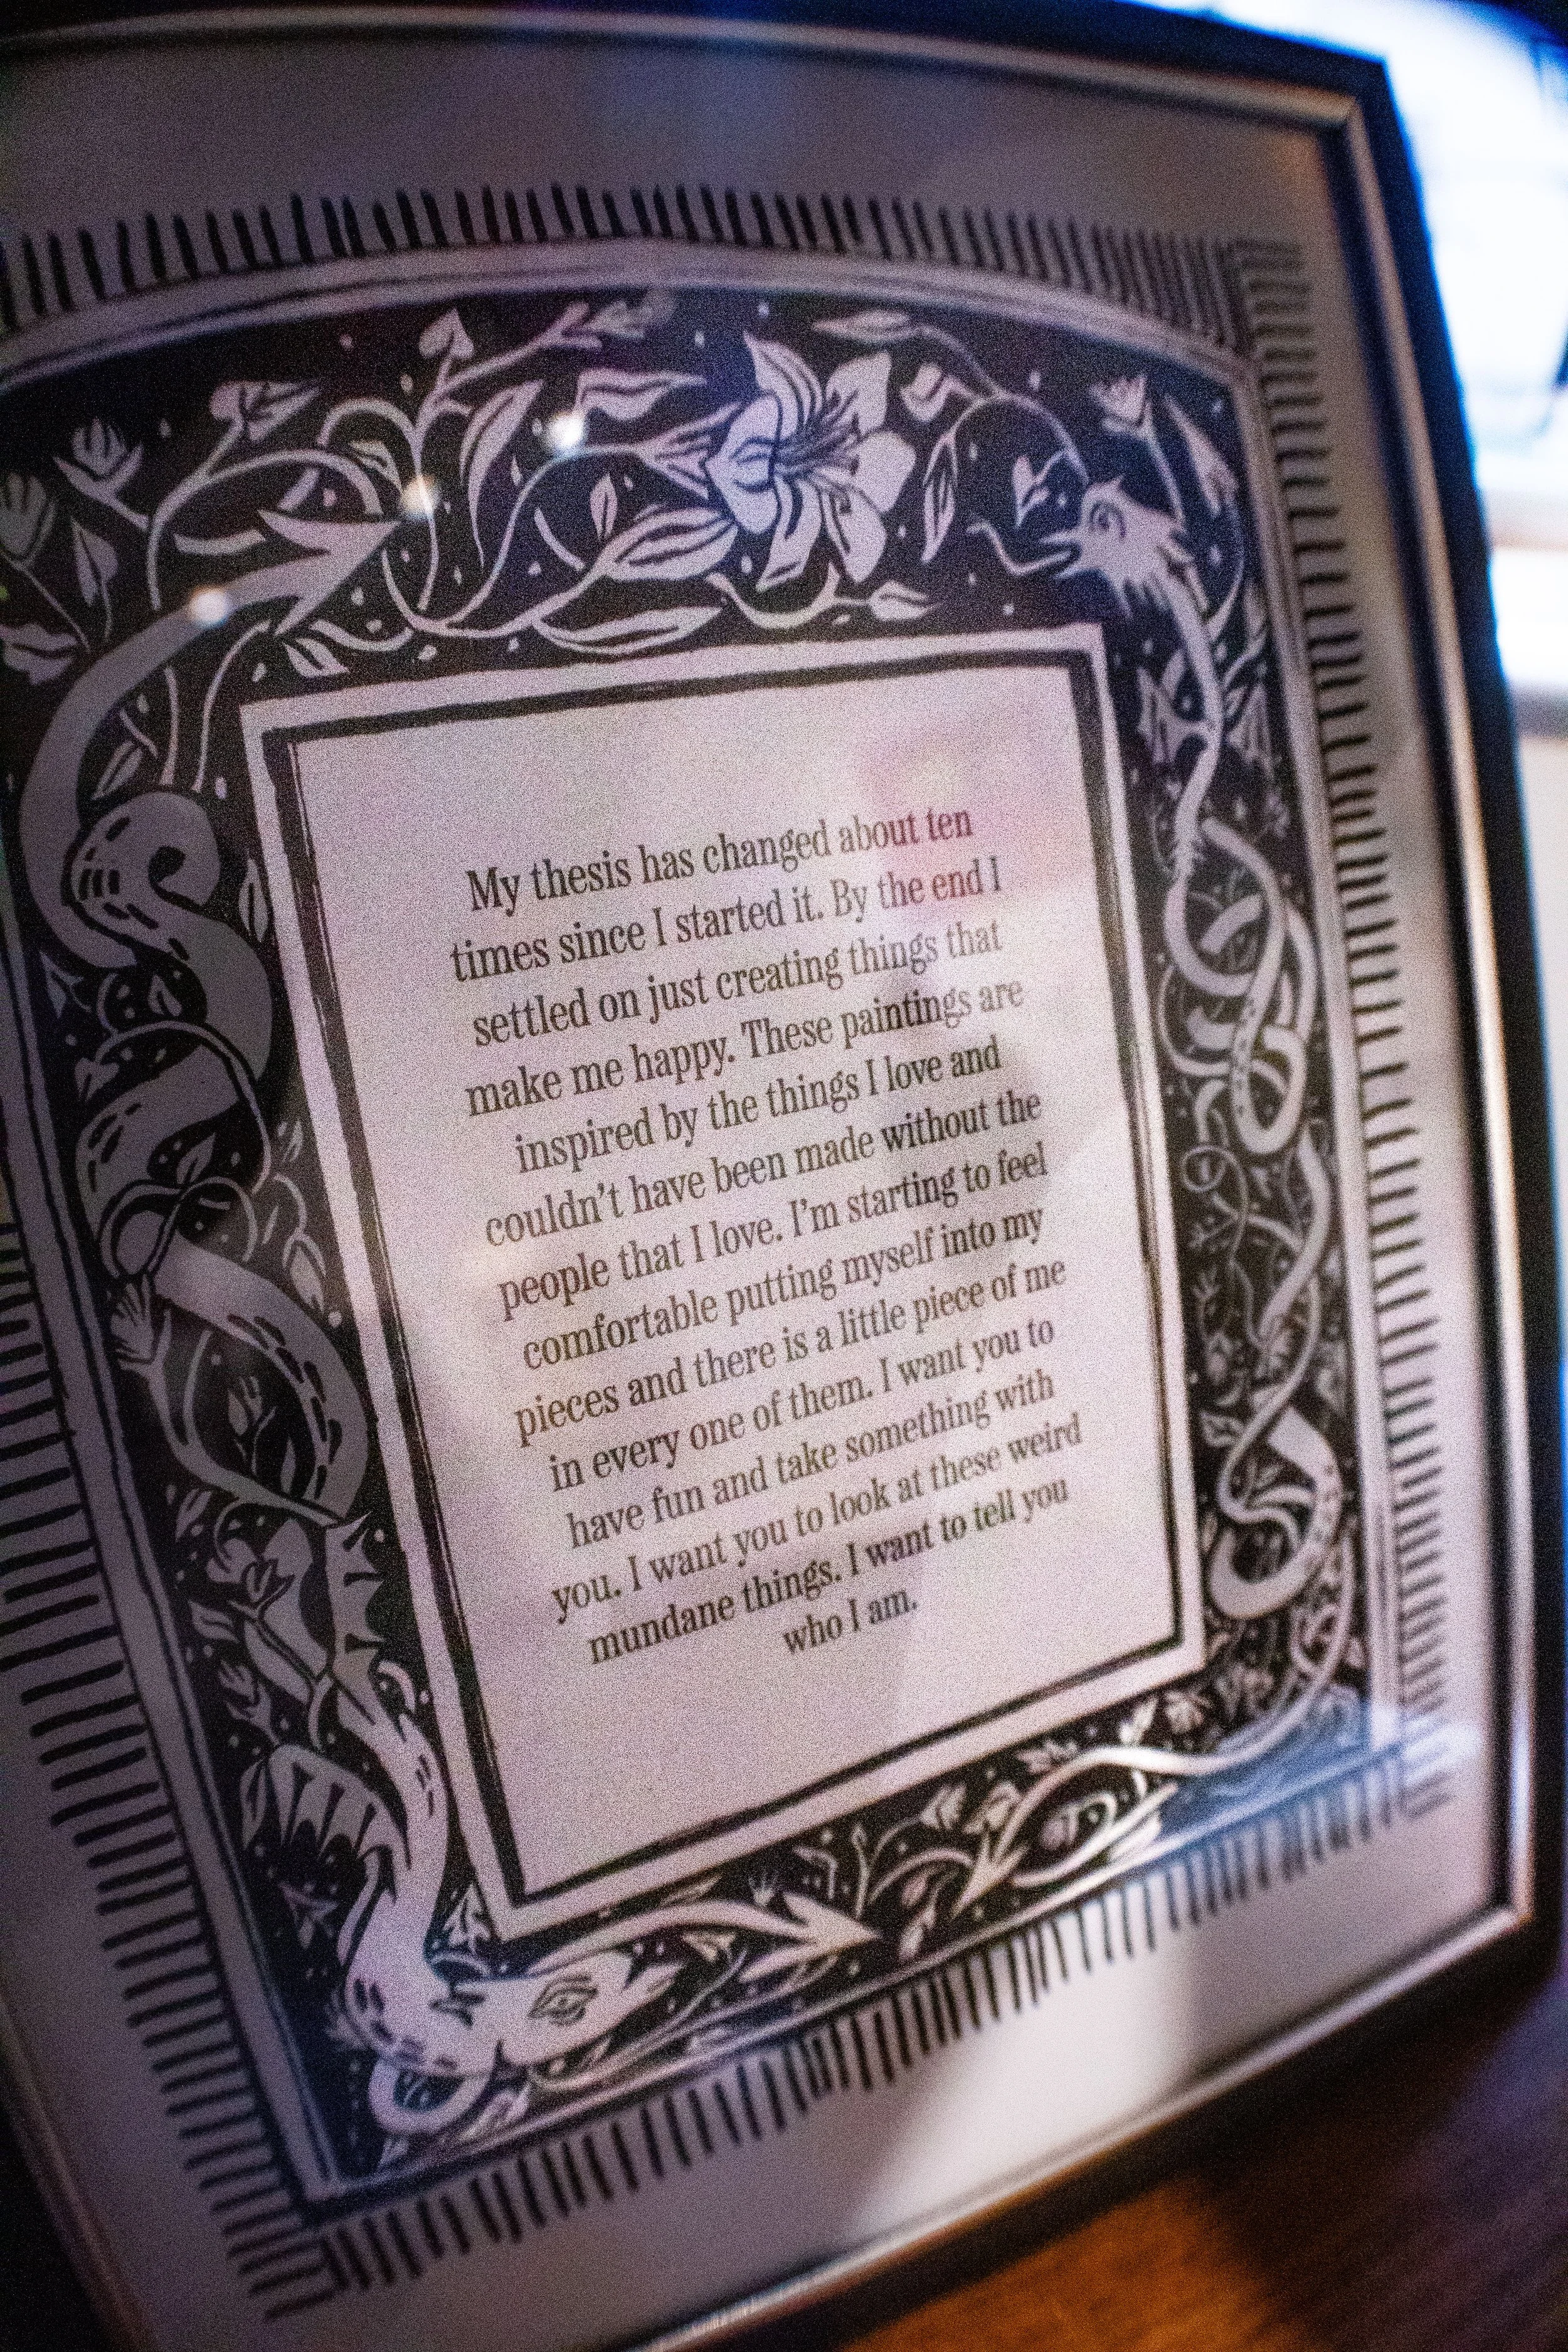 My thesis has changed about ten
times since I started it. By the end I
settled on just creating things that
make me happy. These paintings are
inspired by the things I love and
couldn’t have been made without the
people that I love. I’m starting to feel
comfortable putting myself into my
pieces and there is a little piece of me
in every one of them. I want you to
have fun and take something with
you. I want you to look at these weird
mundane things. I want to tell you
who I am.